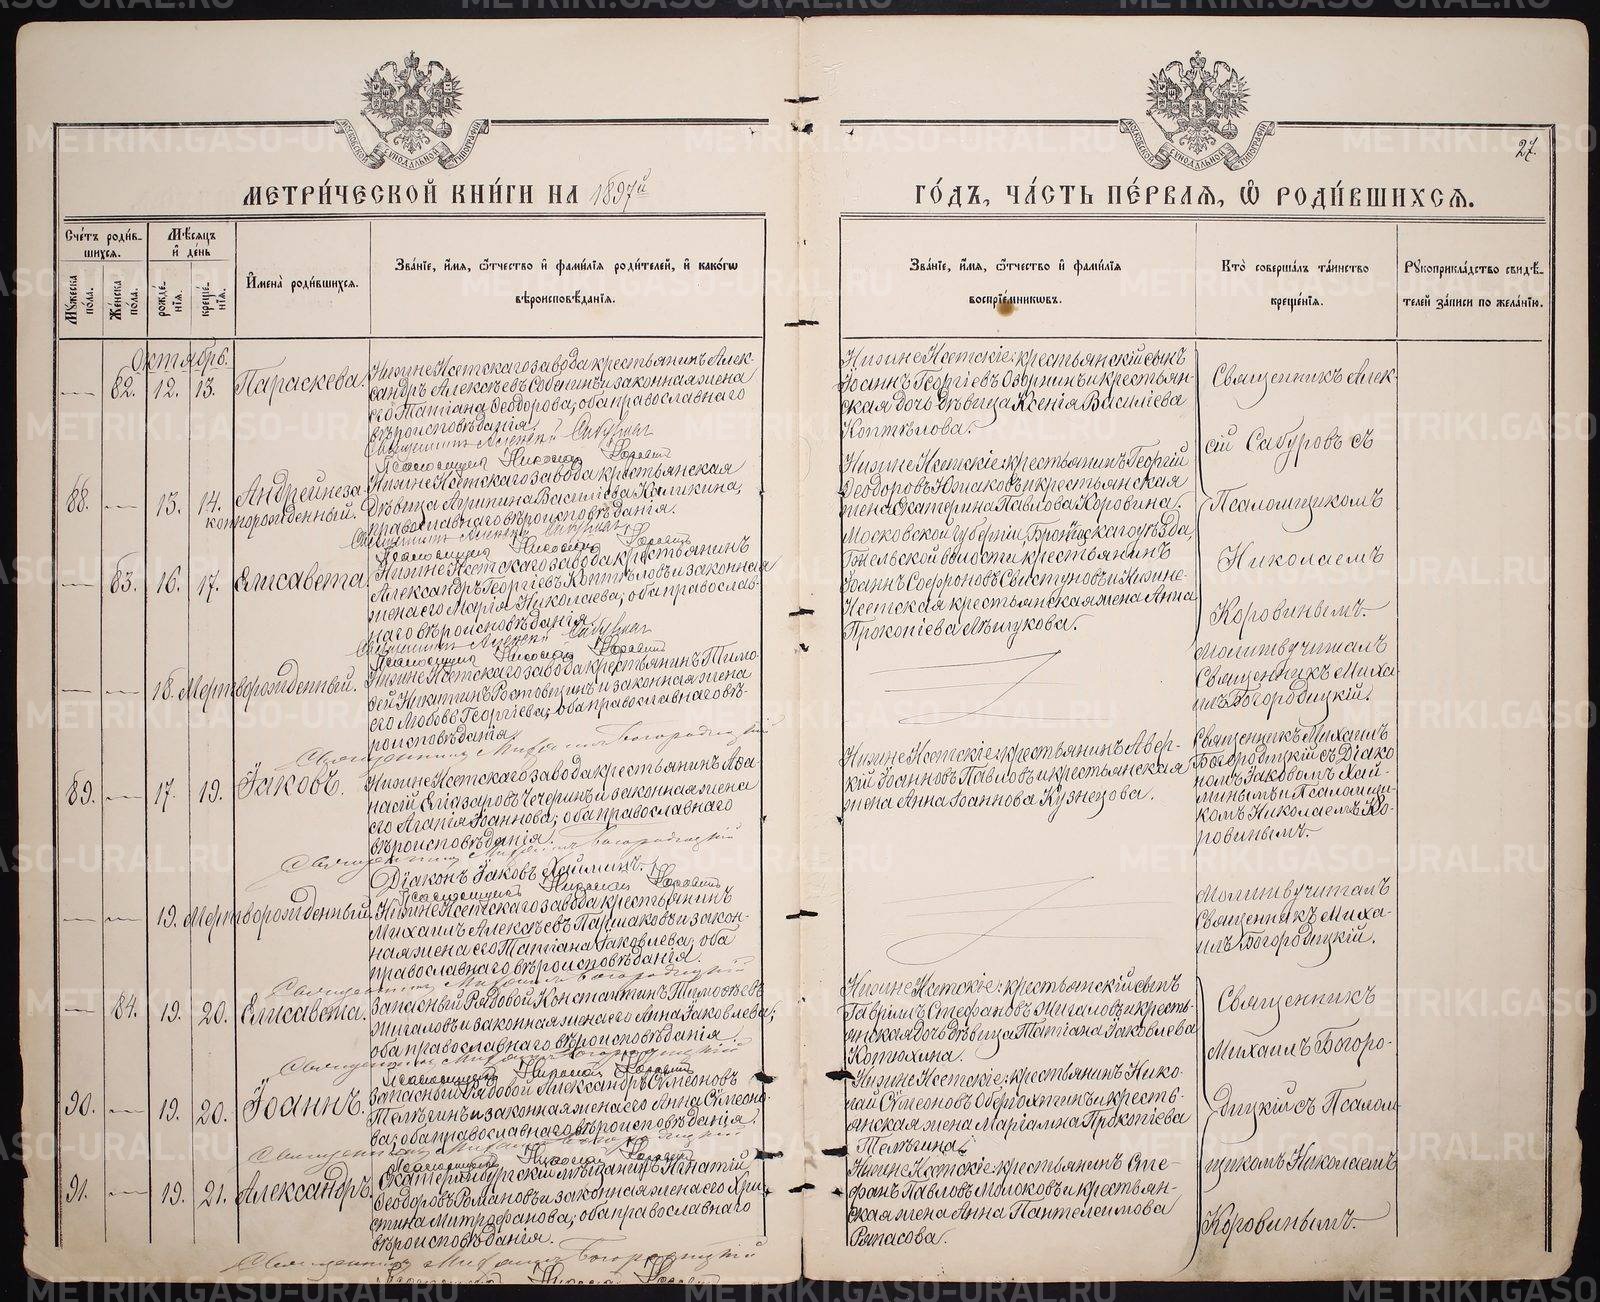 МЕТРИ́ЧЕСКОЙ КНИ́ГИ НА 1897й
ГО́ДЪ, ЧА́СТЬ ПЕ́РВАѦ, Ѡ РОДИ́ВШИХСѦ.
27.
Сче́тъ роди́в-
шихся.
Мѣ́сяцъ
и де́нь
Му́жеска
по́ла.
Же́нска
по́ла.
рожде́-
нїя.
креще́-
нїя.
Имена̀ роди́вшихся.
Зва́нїе, и́мя, о́тчество и фами́лїя роди́телей, и како́гѡ
вѣроисповѣ́данїя.
Зва́нїе, и́мя, о́тчество и фами́лїя
воспрїе́мникѡвъ.
Кто̀ соверша́лъ та́инство
креще́нїя.
Рукоприкла́дство свидѣ́-
телей за́писи по жела́нїю.
Октябрь.
82. 12. 13. Параскева.
Нижне Исетскаго завода крестьянинъ Алек-
сандръ Алексѣевъ Собенинъ и законная жена
его Татiана Ѳеодорова; оба православнаго
вѣроисповѣданiя.
Священникъ Алексѣй Сабуровъ
Псаломщикъ Николай Коровинъ
Нижне Исетскiе: крестьянскiй сынъ
Iоаннъ Георгiевъ Озорнинъ и крестьян-
ская дочь дѣвица Ксенiя Василiева
Коптѣлова.
Священникъ Алек-
сiй Сабуровъ съ
Псаломщикомъ
Николаемъ
Коровинымъ.
88. 13. 14. Андрей неза-
коннорожденный.
Нижне Исетскаго завода крестьянская
дѣвица Агрипина Василiева Каликина,
православнаго вѣроисповѣданiя.
Священникъ Алексѣй Сабуровъ
Псаломщикъ Николай Коровинъ
Нижне Исетскiе: крестьянинъ Георгiй
Ѳеодоровъ Южаковъ и крестьянская
жена Екатерина Павлова Коровина.
83. 16. 17. Елисавета.
Нижне Исетскаго завода крестьянинъ
Александръ Георгiевъ Коптѣловъ и законная
жена его Марiя Николаева; оба православ-
наго вѣроисповѣданiя.
Священникъ Алексѣй Сабуровъ
Псаломщикъ Николай Коровинъ
Московской губернiи, Бронницкаго уѣзда,
Гжельской волости крестьянинъ
Iоаннъ Софроновъ Свистуновъ и Нижне-
Исетская крестьянская жена Анна
Прокопiева
18. Мертворожденный.
Нижне Исетскаго завода крестьянинъ Тимо-
ѳей Никитинъ Ростовщинъ и законная жена
его Любовь Георгiева; оба православнаго вѣ-
роисповѣданiя.
Священникъ Михаилъ Богородицкiй
Молитву читалъ
Священникъ Миха-
илъ Богородицкiй.
89. 17. 19. Iаковъ.
Нижне Исетскаго завода крестьянинъ Аѳа-
насiй Елiазаровъ Чечеринъ и законная жена
его Агапiя Iоаннова; оба православнаго
вѣроисповѣданiя.
Священникъ Михаилъ Богородицкiй
Дiаконъ Iаковъ Хайминъ.
Псаломщикъ Николай Коровинъ
Нижне Исетскiе: крестьянинъ Авер-
кiй Iоанновъ Павловъ и крестьянская
жена Анна Iоаннова Кузнецова.
Священникъ Михаилъ
Богородицкiй съ Дiако
номъ Iаковомъ Хай-
минымъ и Псаломщи-
комъ Николаемъ Ко-
ровинымъ.
19. Мертворожденный.
Нижне Исетскаго завода крестьянинъ
Михаилъ Алексѣевъ Паршаковъ и закон-
ная жена его Татiана Iаковлева; оба
православнаго вѣроисповѣданiя.
Священникъ Михаилъ Богородицкiй
Молитву читалъ
Священникъ Миха-
илъ Богородицкiй.
84. 19. 20. Елисавета.
Запасный Рядовой Константинъ Тимоѳеевъ
Жигаловъ и законная жена его Анна Iаковлева;
оба православнаго вѣроисповѣданiя.
Священникъ Михаилъ Богородицкiй
Псаломщикъ Николай Коровинъ
Нижне Исетскiе: крестьянскiй сынъ
Гаврiилъ Стефановъ Жигаловъ и кресть-
янская дочь дѣвица Татiана Iаковлева
Котюхина.
Священникъ
Михаилъ Богоро-
дицкiй съ Псалом-
щикомъ Николаемъ
Коровинымъ.
90. 19. 20. Iоаннъ.
Запасный Рядовой Александръ Сѵмеоновъ
Телѣгинъ и законная жена его Анна Сѵмеоно-
ва; оба православнаго вѣроисповѣданiя.
Священникъ Михаилъ Богородицкiй
Псаломщикъ Николай Коровинъ
Нижне Исетскiе: крестьянинъ Нико-
лай Сѵмеоновъ Обертохтинъ и кресть-
янская жена Марiамна Прокопiева
Телѣгина.
91. 19. 21. Александръ.
Екатеринбургскiй мѣщанинъ Игнатiй
Ѳеодоровъ Романовъ и законная жена его Хри-
стина Митрофанова; оба православнаго
вѣроисповѣданiя.
Священникъ Михаилъ Богородицкiй
Псаломщикъ Николай Коровинъ
Нижне Исетскiе: крестьянинъ Сте-
фанъ Павловъ Молоковъ и крестьян-
ская жена Анна Пантелеимова
Ряпасова.
METRIKI.GASO-URAL.RU